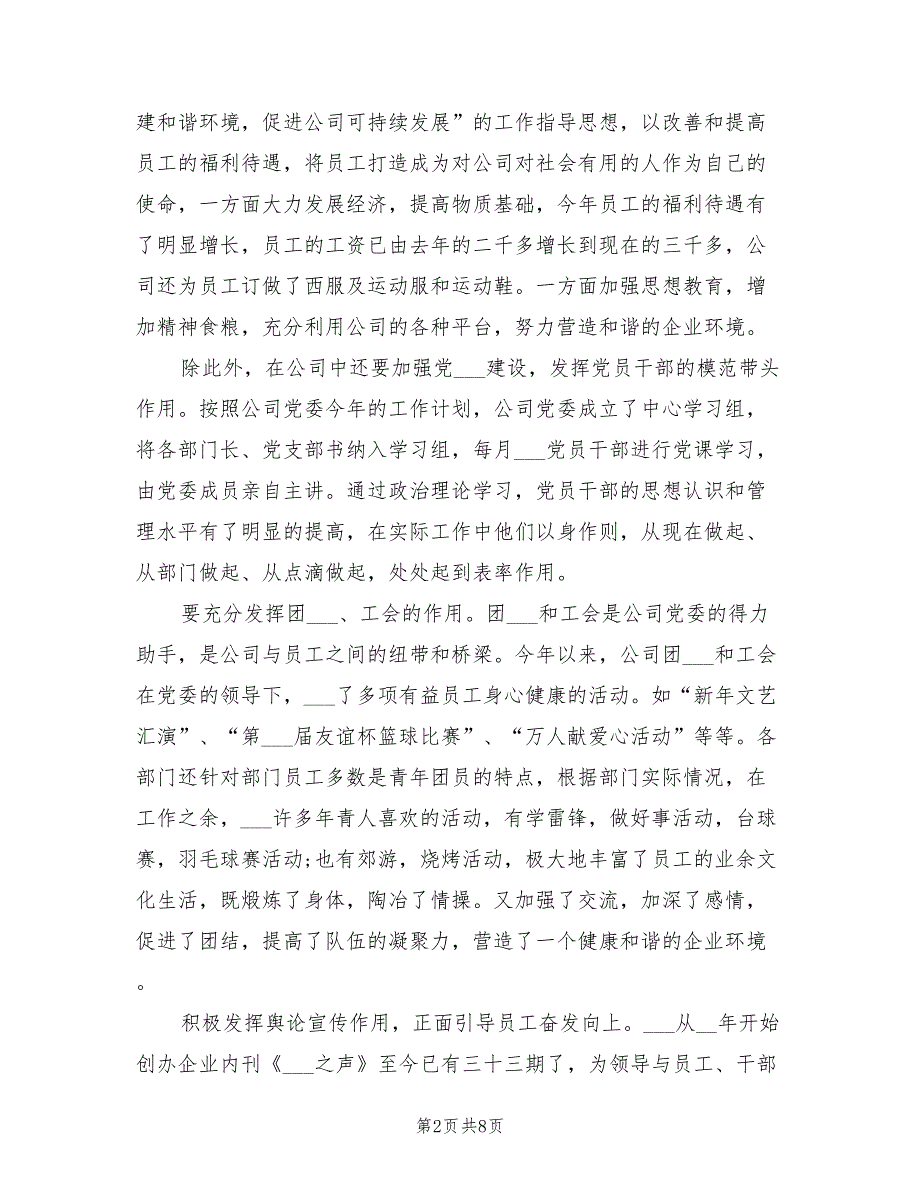 建和谐环境，促进公司可持续发展”的工作指导思想，以改善和提高
员工的福利待遇，将员工打造成为对公司对社会有用的人作为自己的
使命，一方面大力发展经济，提高物质基础，今年员工的福利待遇有
了明显增长，员工的工资已由去年的二千多增长到现在的三千多，公
司还为员工订做了西服及运动服和运动鞋。一方面加强思想教育，增
加精神食粮，充分利用公司的各种平台，努力营造和谐的企业环境。
除此外，在公司中还要加强党___建设，发挥党员干部的模范带头
作用。按照公司党委今年的工作计划，公司党委成立了中心学习组，
将各部门长、党支部书纳入学习组，每月___党员干部进行党课学习，
由党委成员亲自主讲。通过政治理论学习，党员干部的思想认识和管
理水平有了明显的提高，在实际工作中他们以身作则，从现在做起、
从部门做起、从点滴做起，处处起到表率作用。
要充分发挥团___、工会的作用。团___和工会是公司党委的得力
助手，是公司与员工之间的纽带和桥梁。今年以来，公司团___和工会
在党委的领导下，___了多项有益员工身心健康的活动。如“新年文艺
汇演”、“第___届友谊杯篮球比赛”、“万人献爱心活动”等等。各
部门还针对部门员工多数是青年团员的特点，根据部门实际情况，在
工作之余，___许多年青人喜欢的活动，有学雷锋，做好事活动，台球
赛，羽毛球赛活动;也有郊游，烧烤活动，极大地丰富了员工的业余文
化生活，既煅炼了身体，陶冶了情操。又加强了交流，加深了感情，
促进了团结，提高了队伍的凝聚力，营造了一个健康和谐的企业环境
。
积极发挥舆论宣传作用，正面引导员工奋发向上。___从__年开始
创办企业内刊《___之声》至今已有三十三期了，为领导与员工、干部
第2页 共8页